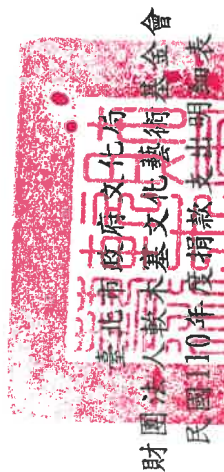 臺北市政府文化局
財團法人軟木塞文化藝術基金會
民國110年度捐款支出明細表